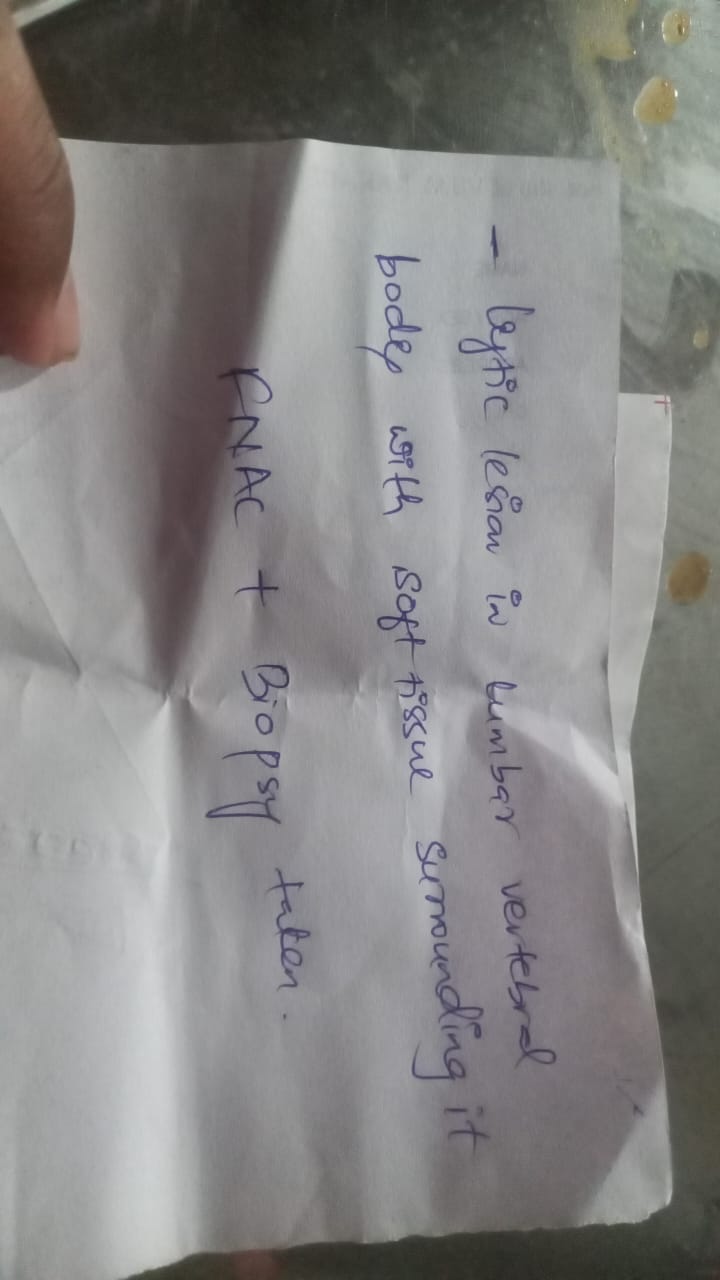 - lytic lesion in lumbar vertebral
body with soft tissue surrounding it
FNAC + Biopsy taken.